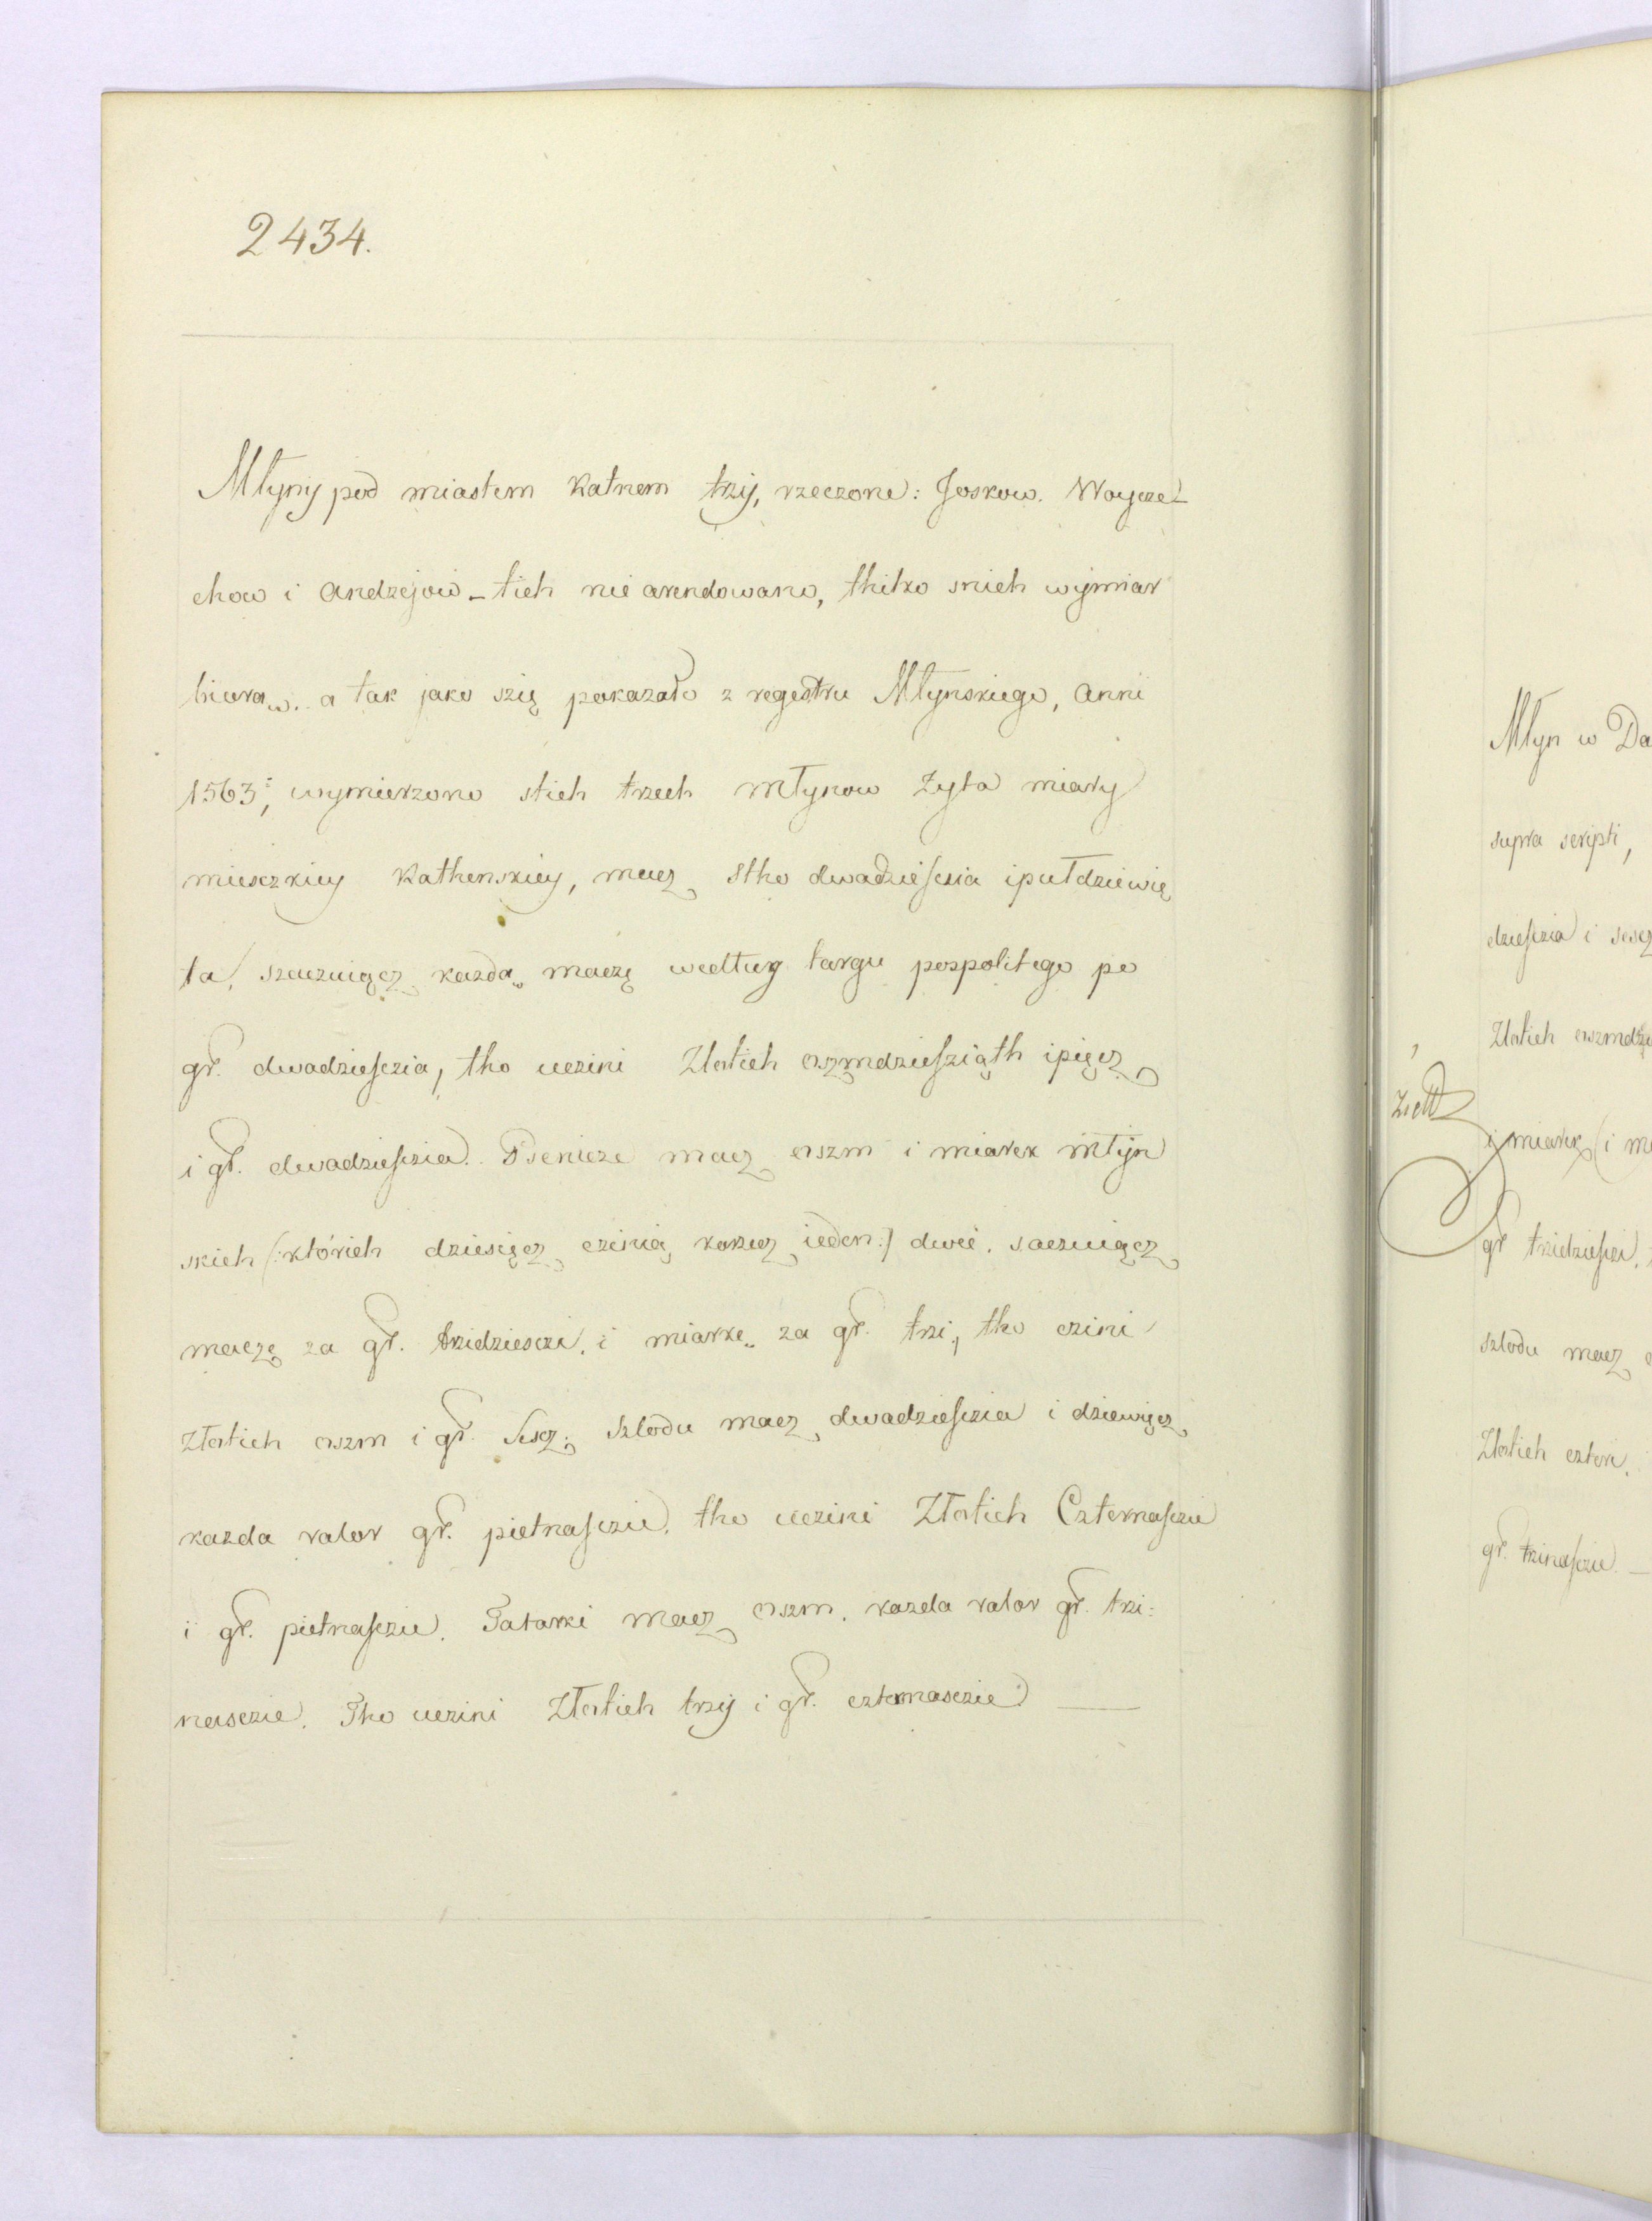 2434.
Młyny pod miastem Katnem trzy, rzeczone: Joskow. Woycze-
chow i Andzejow – tich nie arendowano, thilko snich wymiar
biora. a tak jako szię pokazało z regestru Młynskiego, Anni
1563; wymierzono stich trzech młynow Zyta miary
miesczkiey Kathenskiey, macz stho dwadziesczia ipułdziewię
ta, szaczuiącz kazda maczę wedlug targu pospolitego po
gr. dwadziesczia, tho uczini Złotich oszmdzieszijąth ipięcz
i gr. dwadziesczia. Psenicze macz oszm i miarek młyn
skich (:którich dziesięcz czinią korzecz ieden:) dwie. saczuiącz
maczę za gr. trzidziesczi. i miarkę za gr. trzi, tho czini
złotich oszm i gr. sescz. Szlodu macz dwadziesczia i dziewięcz
kazda valor gr. pietnasczie. tho uczini Złotich Czternasczie
i gr. pietnasczie. Tatarki macz oszm. kazda valor gr. trzi:
nasczie. Tho uczini Złotich trzy i gr. czternasczie —
Młyn w Da
supra scripti,
dziesczia i sescz
Złotich oszmdzie
i miarek (i m
gr trzidziesczi.
szlodu macz
Złotich czteri.
gr. trzinasczie —